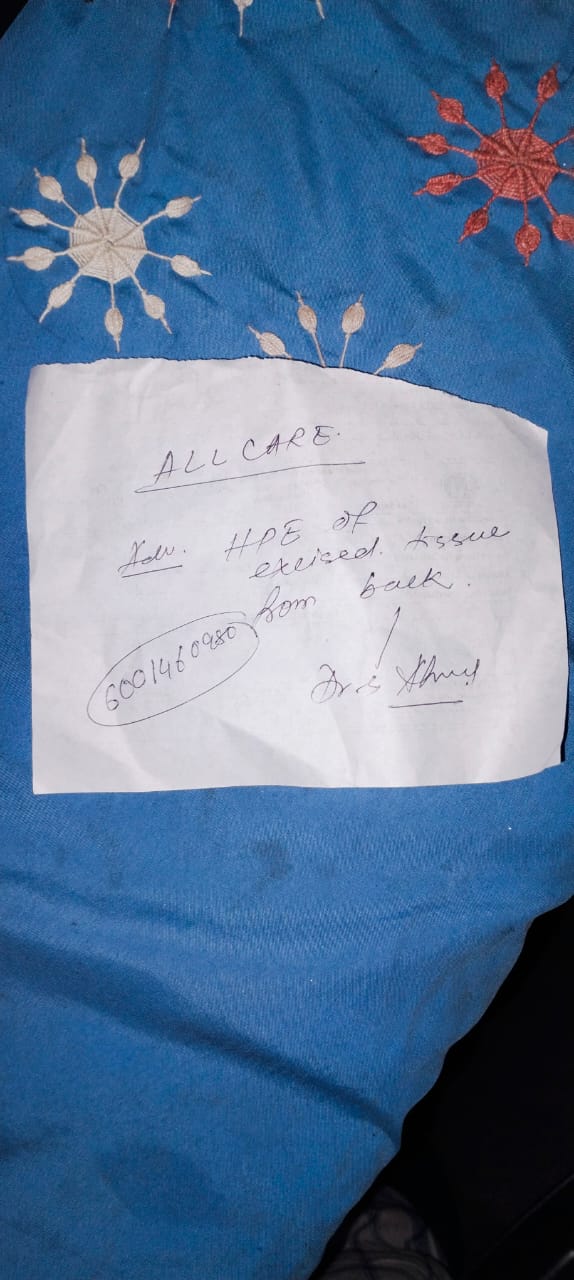 ALL CARE.
Adv. HPE of
excised tissue
from back.
6001460980
Dr. S Ahmed